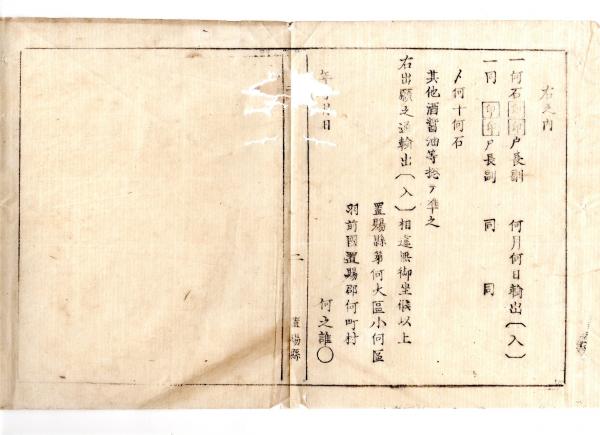 右之内
一何石 戸長副 何月何日輸出〔入〕
一同 戸長副 同 同
〆何十何石
其他酒醤油等総テ準之
右出願之通輸出〔入〕相違無御坐候以上
置賜縣第何大區小何區
羽前國置賜郡何町村
何之誰〇
年 月日
二
置賜縣